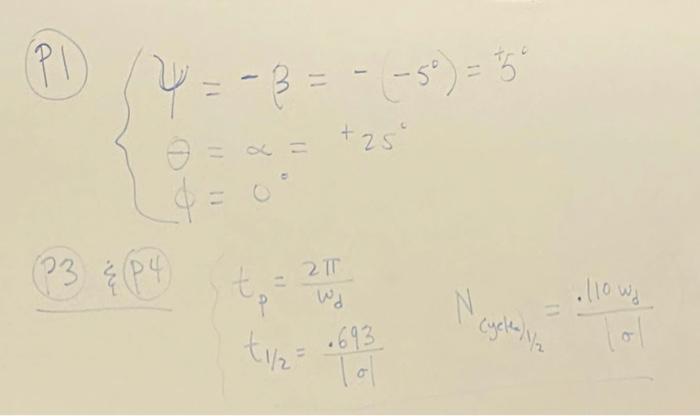 P1
ψ = -β = -(-5°) = +5°
θ = α = +25°
φ = 0°
P3 & P4
t_p = 2π / ω_d
t_1/2 = .693 / |σ|
N_(cycles)_1/2 = .110 ω_d / |σ|